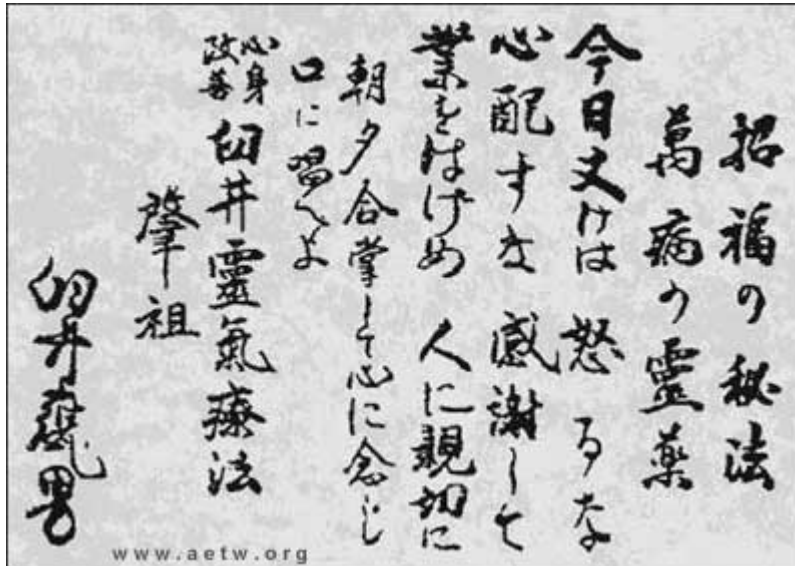 招福の秘法
萬病の靈薬
今日丈けは 怒るな
心配すな 感謝して
業をはげめ 人に親切に
朝夕合掌して心に念じ
口に唱へよ
心身
改善 臼井靈氣療法
肇祖
臼井甕男
www.aetw.org